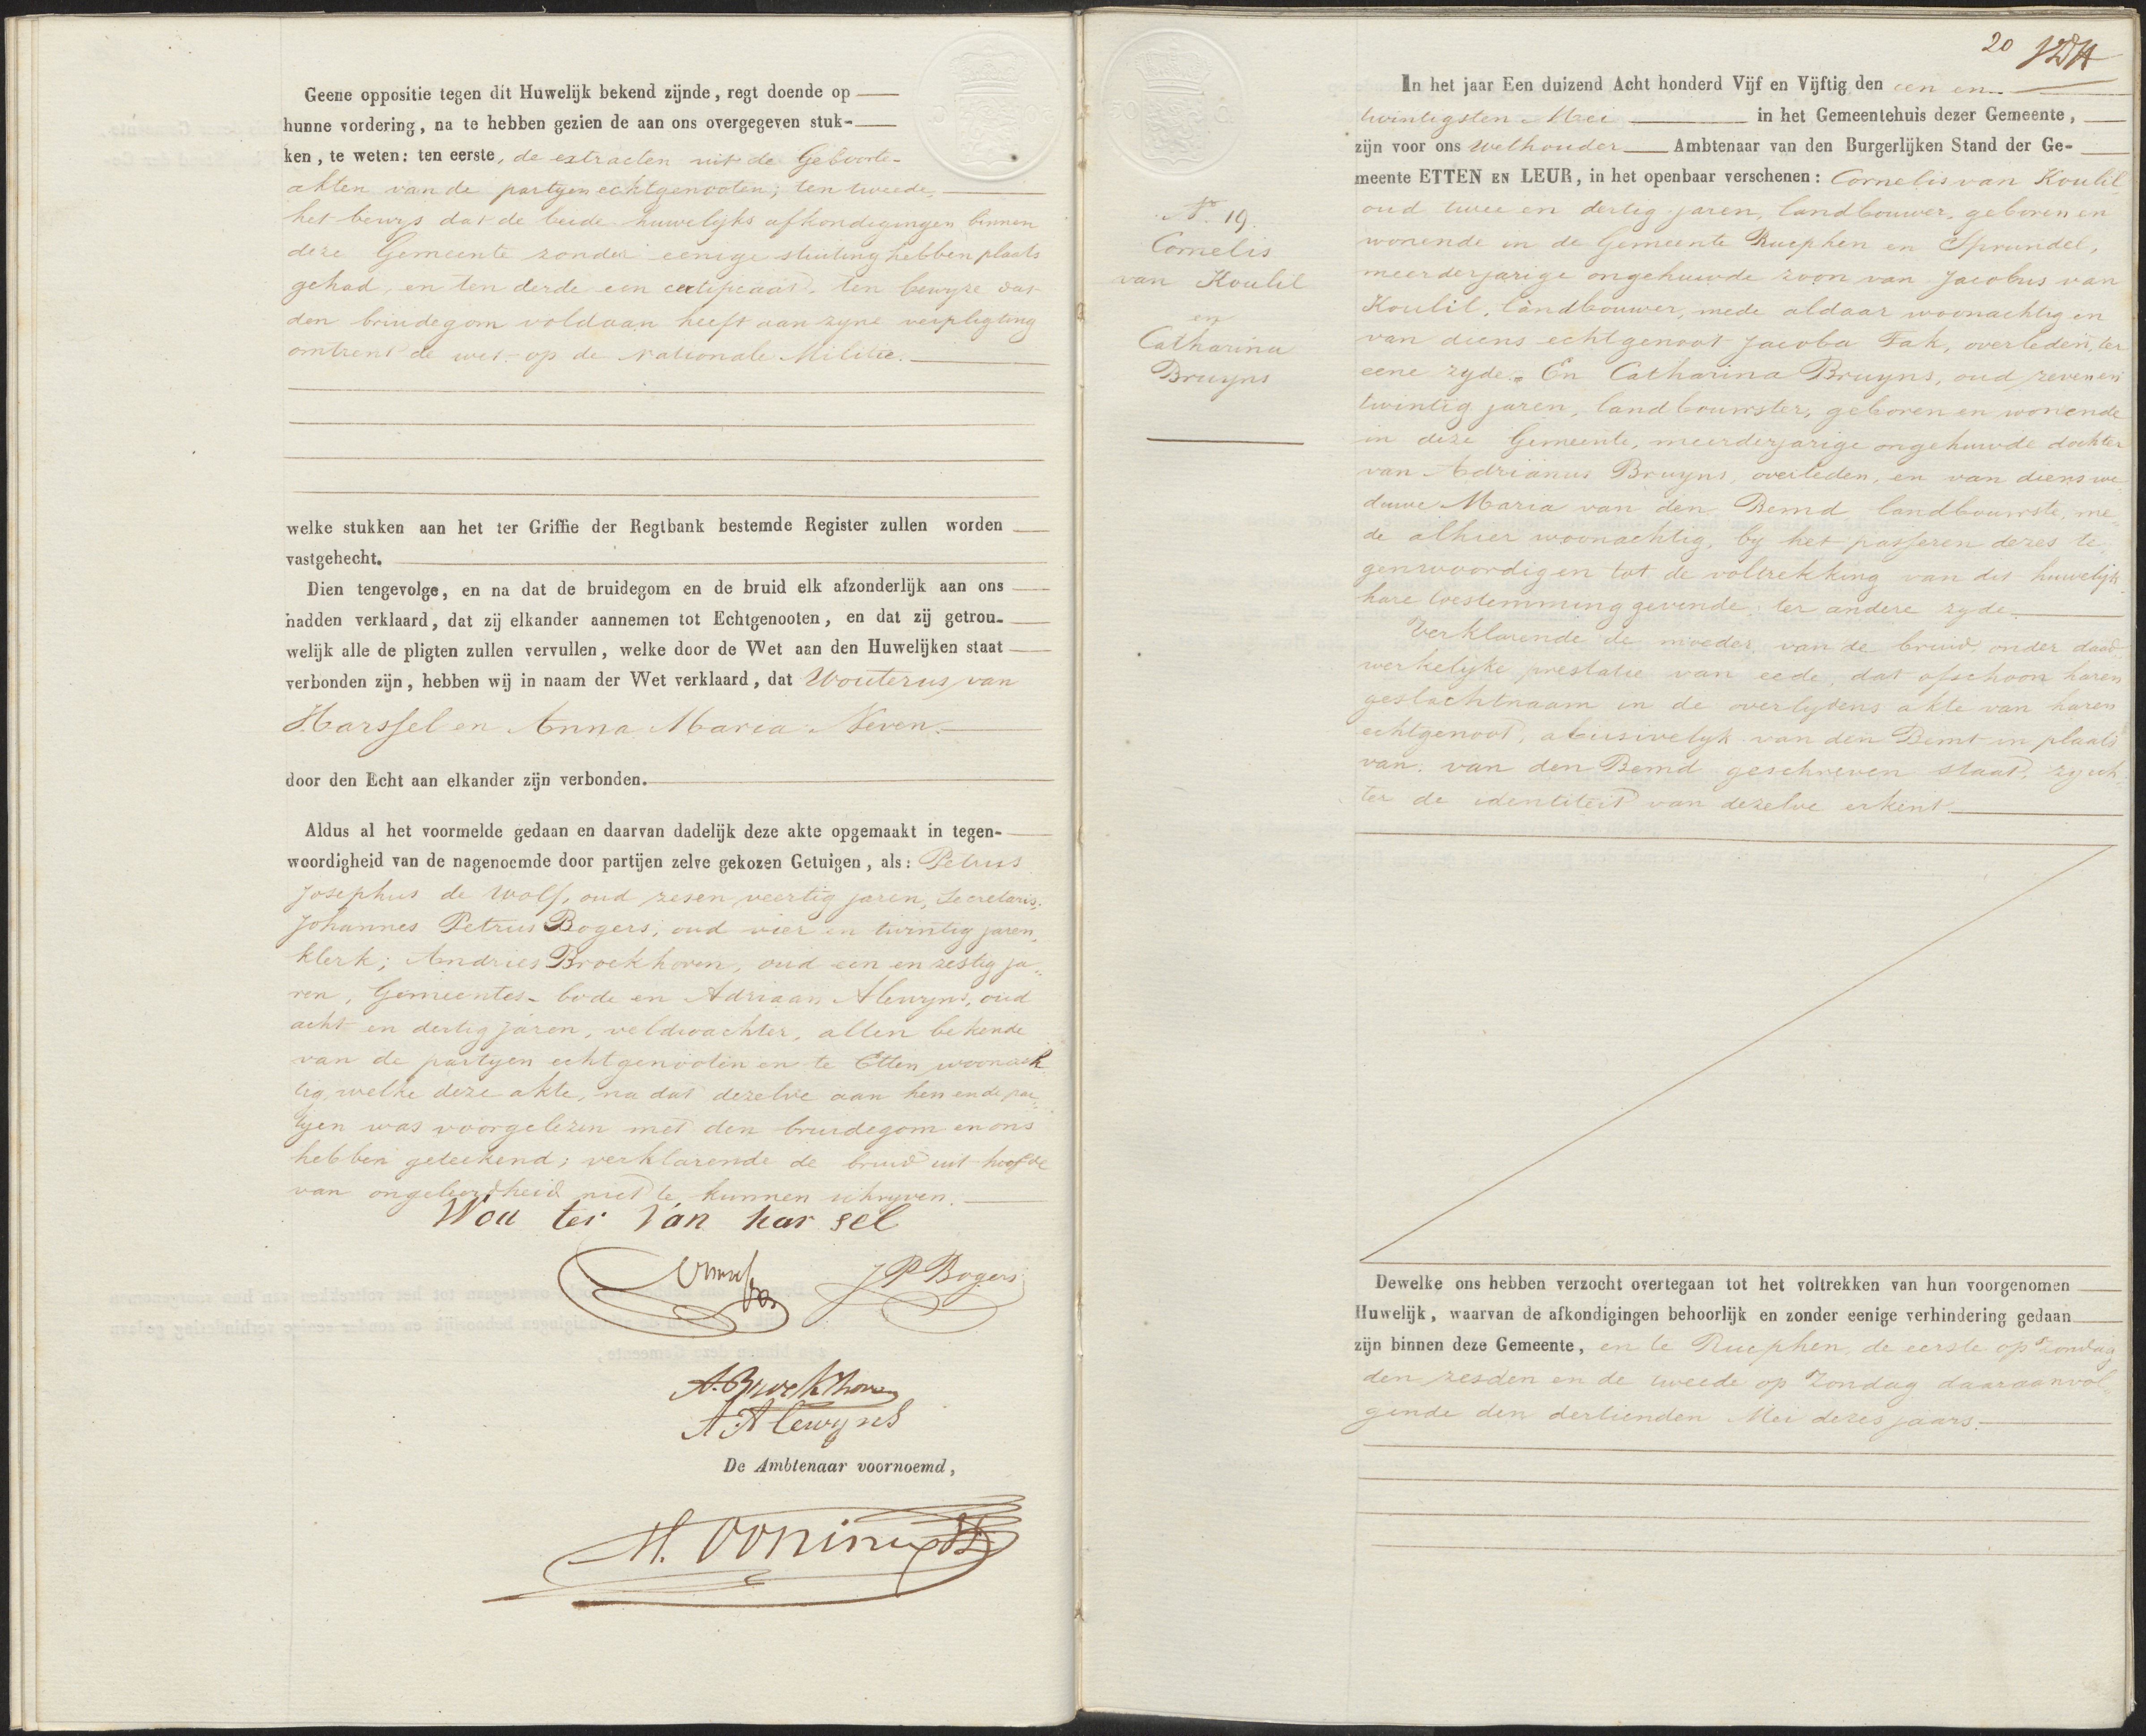 Geene oppositie tegen dit Huwelijk bekend zijnde, regt doende op
hunne vordering, na te hebben gezien de aan ons overgegeven stuk-
ken, te weten: ten eerste, de extracten uit de Geboorte-
akten van de partyen echtgenooten; ten tweede,
het bewys dat de beide huwelyks afkondigingen binnen
deze Gemeente zonder eenige stuiting hebben plaats
gehad, en ten derde een certificaat, ten bewyze dat
den bruidegom voldaan heeft aan zyne verpligting
omtrent de wet op de Nationale Militie.
welke stukken aan het ter Griffie der Regtbank bestemde Register zullen worden
vastgehecht.
Dien tengevolge, en na dat de bruidegom en de bruid elk afzonderlijk aan ons
hadden verklaard, dat zij elkander aannemen tot Echtgenooten, en dat zij getrou-
welijk alle de pligten zullen vervullen, welke door de Wet aan den Huwelijken staat
verbonden zijn, hebben wij in naam der Wet verklaard, dat Wouterus van
Harssel en Anna Maria Neven.
door den Echt aan elkander zijn verbonden.
Aldus al het voormelde gedaan en daarvan dadelijk deze akte opgemaakt in tegen-
woordigheid van de nagenoemde door partijen zelve gekozen Getuigen, als: Petrus
Josephus de Wolf, oud zesen veertig jaren, Secretaris;
Johannes Petrus Bogers, oud vier en twintig jaren,
klerk; Andries Broekhoven, oud een en zestig ja-
ren, Gemeentes-bode en Adriaan Alewyns, oud
acht en dertig jaren, veldwachter, allen bekende
van de partyen echtgenooten en te Etten woonach
tig, welke deze akte, na dat dezelve aan hen en de par-
tyen was voorgelezen met den bruidegom en ons
hebben geteekend; verklarende de bruid uit hoofde
van ongeleerdheid niet te kunnen schryven.
Wou ter Van har sel
J P Bogers
A. Broekhoven
A Alewyns
De Ambtenaar voornoemd,
20
In het jaar Een duizend Acht honderd Vijf en Vijftig den een en
twintigsten Mei in het Gemeentehuis dezer Gemeente,
zijn voor ons Wethouder Ambtenaar van den Burgerlijken Stand der Ge-
meente ETTEN EN LEUR, in het openbaar verschenen: Cornelis van Koulil
oud twee en dertig jaren, landbouwer, geboren en
wonende in de Gemeente Rucphen en Sprundel,
meerderjarige ongehuwde zoon van Jacobus van
Koulil, landbouwer, mede aldaar woonachtig en
van diens echtgenoot Jacoba Fak, overleden, ter
eene zyde. En Catharina Bruyns, oud zeven en
twintig jaren, landbouwster, geboren en wonende
in deze Gemeente, meerderjarige ongehuwde dochter
van Adrianus Bruyns, overleden, en van diens we
duwe Maria van den Bemd landbouwste, me-
de alhier woonachtig, by het passeren dezes te
genswoordig en tot de voltrekking van dit huwelijk
hare toestemming gevende, ter andere zyde
Verklarende de moeder van de bruid, onder daad
werkelyke prestatie van eede, dat ofschoon haren
geslachtnaam in de overlydens akte van haren
echtgenoot, abusivelyk van den Bemt in plaats
van, van den Bemd geschreven staat, zy ech-
ter de identiteit van dezelve erkent
No. 19.
Cornelis
van Koulil
en
Catharina
Bruyns
Dewelke ons hebben verzocht overtegaan tot het voltrekken van hun voorgenomen
Huwelijk, waarvan de afkondigingen behoorlijk en zonder eenige verhindering gedaan
zijn binnen deze Gemeente, en te Rucphen, de eerste op zondag
den zesden en de tweede op Zondag daaraanvol-
gende den dertienden Mei dezes jaars.